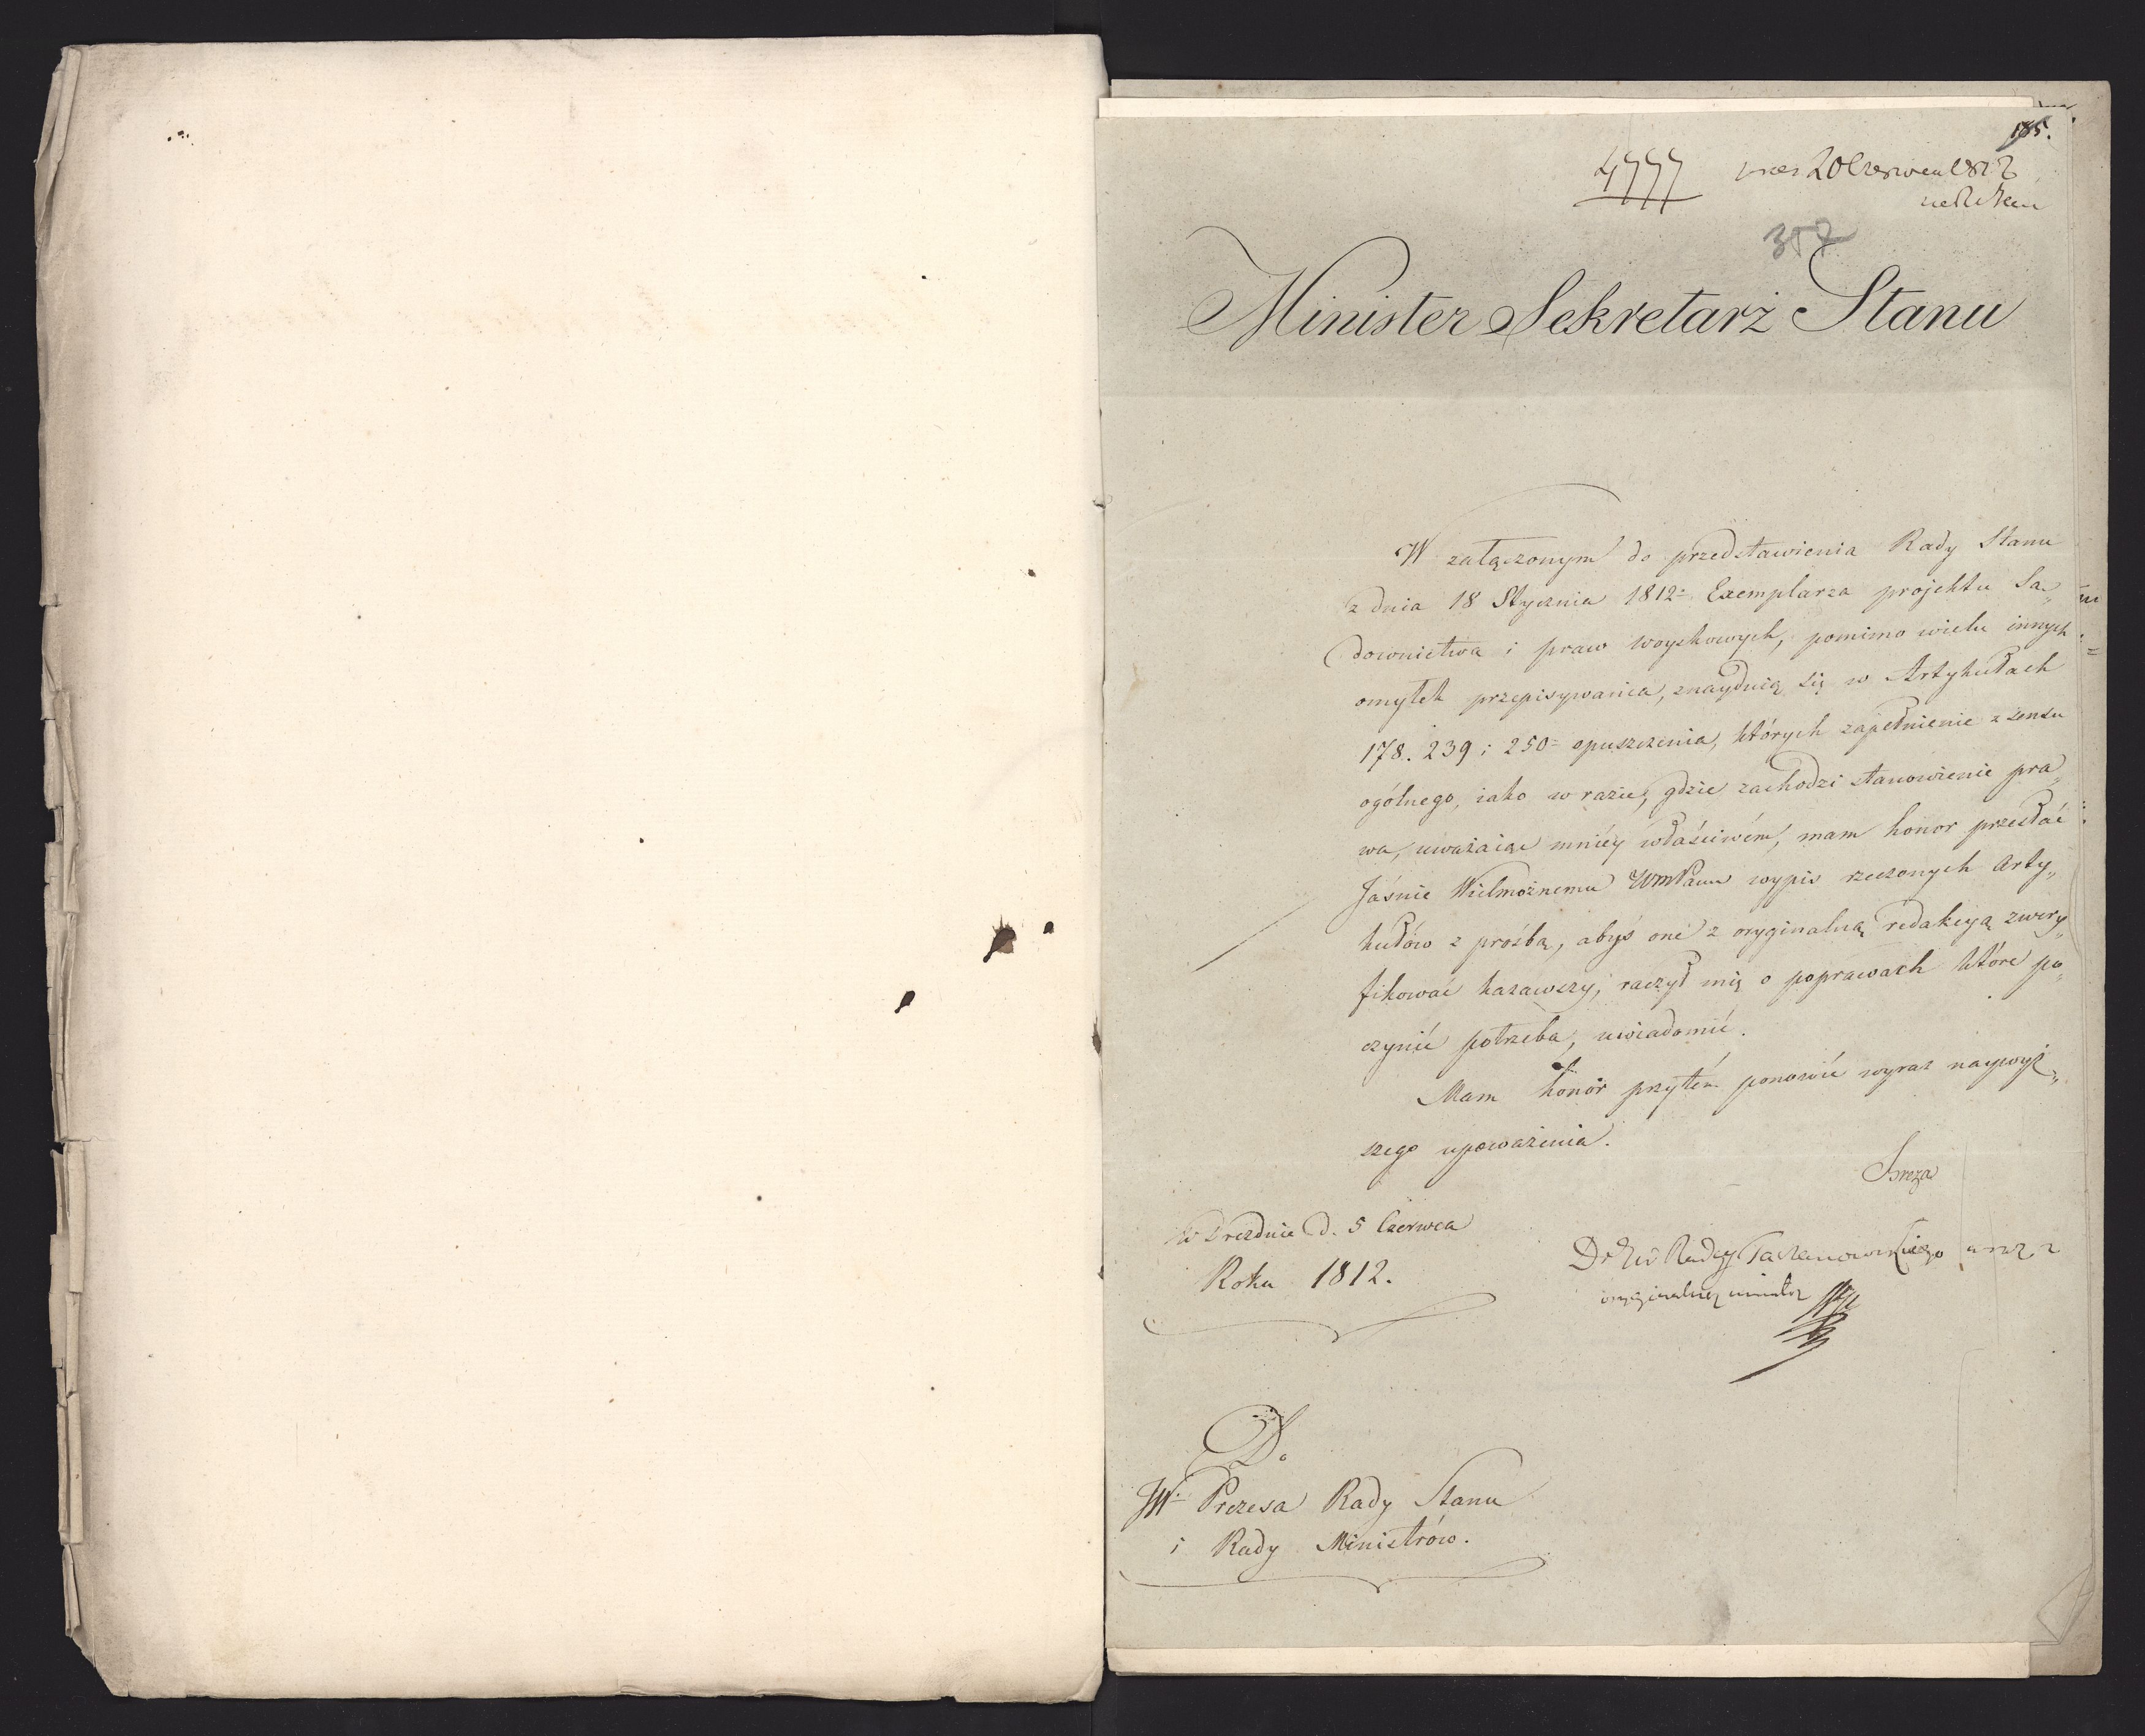 185.
4777 pres 20 Czerwca 1812
357
Minister Sekretarz Stanu
W załączonym do przedstawienia Rady Stanu
z dnia 18 Stycznia 1812 = Exemplarza projektu Są„
downictwa i praw woyskowych, pomimo wielu innych
omyłek przepisywania, znayduią się w Artykułach
178. 239 i 250 = opuszczenia, których zapełnienie z sensu
ogólnego, iako w razie, gdzie zachodzi stanowienie pra„
wa, uważaiąc mniéy właściwém, mam honor przesłać
Jaśnie Wielmożnemu WmPanu wypis rzeczonych Arty„
kułów z prośbą, abyś one z oryginalną redakcyą zwery„
fikować kazawszy, raczył mię o poprawach które po„
czynić potrzeba, uwiadomić.
Mam honor przytém ponowić wyraz naywyż„
szego upoważenia.
Breza
w Dreznie d. 5 Czerwca
Roku 1812.
oryginalney
Do
JW Prezesa Rady Stanu
i Rady Ministrów.